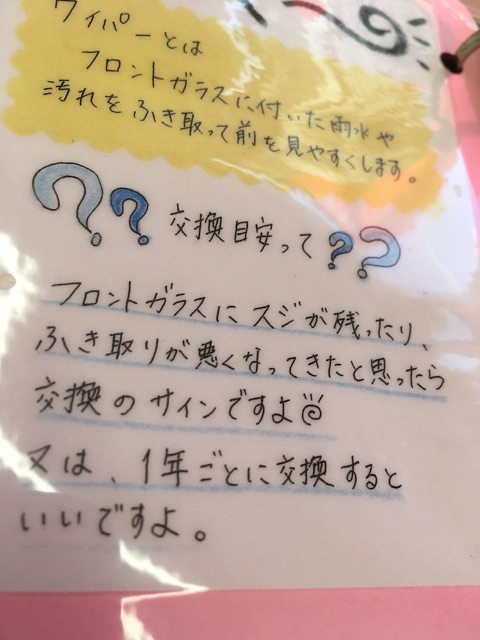 ワイパーとは
フロントガラスに付いた雨水や
汚れをふき取って前を見やすくします。
?? 交換目安って ??
フロントガラスにスジが残ったり、
ふき取りが悪くなってきたと思ったら
交換のサインですよ
又は、1年ごとに交換すると
いいですよ。